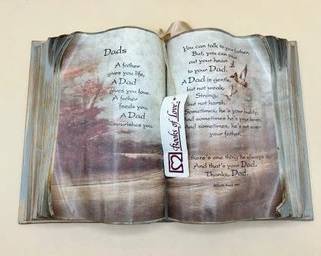 Dads
A father
gives you life,
A Dad
gives you love.
A father
feeds you
A Dad
nourishes you
You can talk to your father,
But, you can pour
out your heart
to your Dad.
A Dad is gentle,
but not weak,
Strong,
but not harsh.
Sometimes, he is your buddy,
And sometimes, he is your
And sometimes, he's not even
your father.
there's one thing he always is
And that's your Dad.
Thanks, Dad.
Books of Love